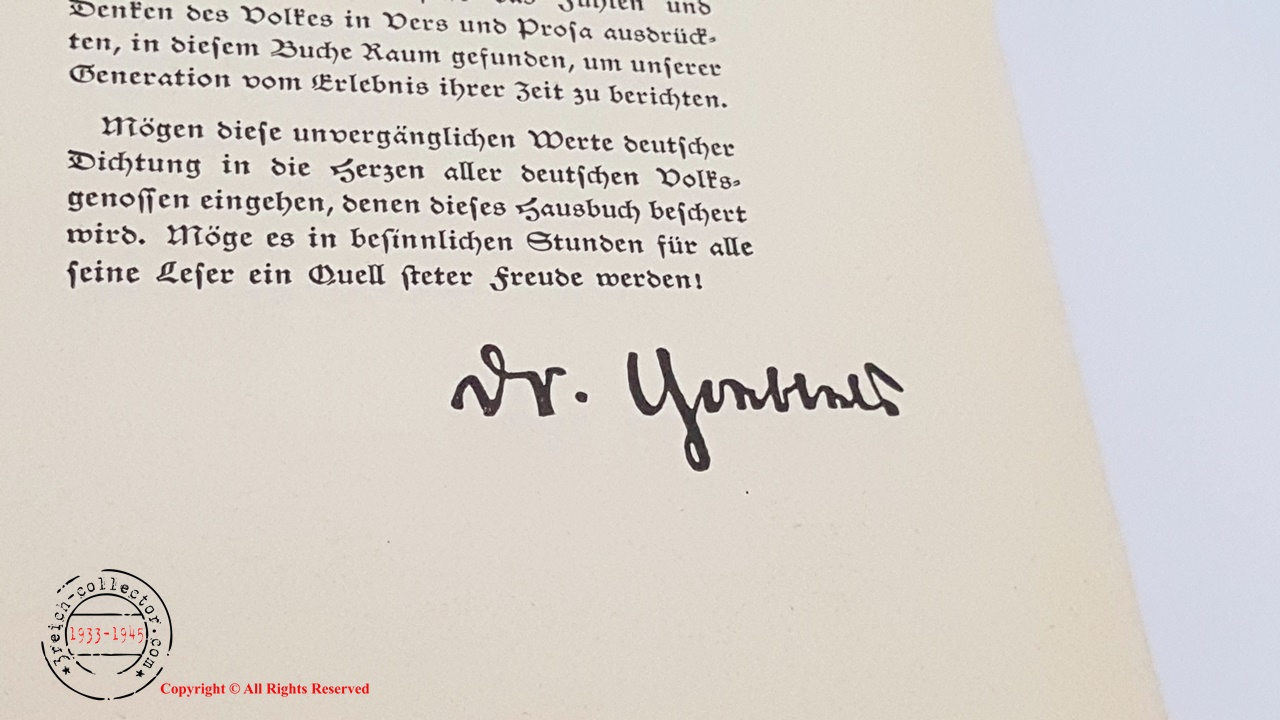 das Fühlen und
Denken des Volkes in Vers und Prosa ausdrück-
ten, in diesem Buche Raum gefunden, um unserer
Generation vom Erlebnis ihrer Zeit zu berichten.
Mögen diese unvergänglichen Werte deutscher
Dichtung in die Herzen aller deutschen Volks-
genossen eingehen, denen dieses Hausbuch beschert
wird. Möge es in besinnlichen Stunden für alle
seine Leser ein Quell steter Freude werden!
Dr. Goebbels
3reich-collector.com
1933-1945
Copyright © All Rights Reserved